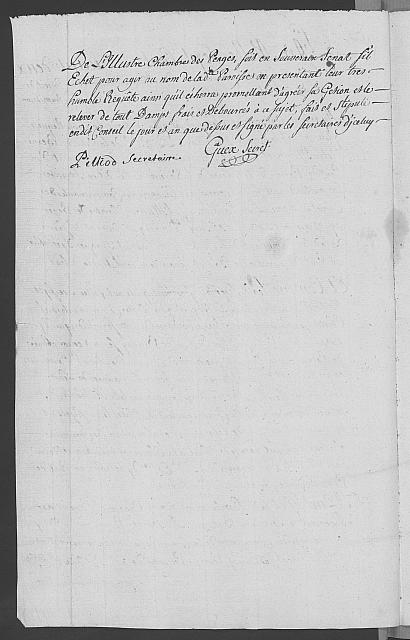 De L'Illustre Chambre des Penges, soit en Souverain Senat sil
Echet pour agir au nom de lad.te Paroisse en presentant leur tres
humble Requete ainsi qu'il eiherra promettant d'agréer sa Gestion et le
relever de tout Damps frais et Debourcés à ce sujet, fait et Stipulé
endit Conseil le jour et an que dessus et signé par les Secretaires d'jceluy
Guex Secret.
Pittiod Secretaire.